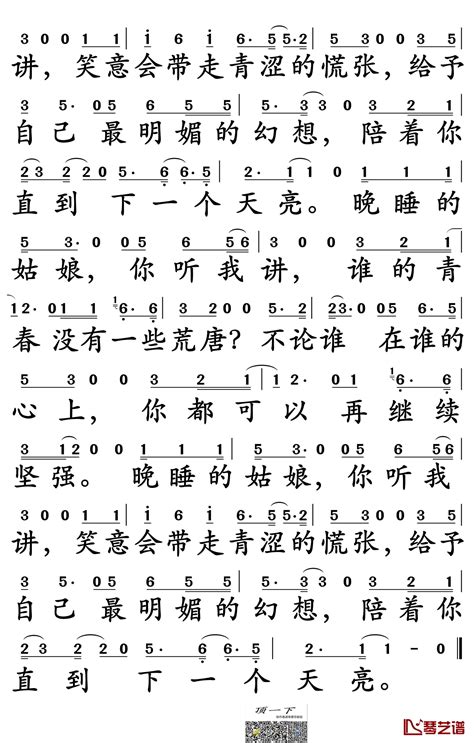 3 0 0 1 1 | i 6 i 6· 5 5·2 | 5 3 0 0 3 5
讲，笑意会带走青涩的慌张，给予
3 5· 0 5 6 5 5 | 5· 3 3 0 3 2 1
自己 最明媚的幻想，陪着你
2 3 2 2 0 5· 6 6·5 | 2· 1 1 0 1 1 1
直到 下一个天亮。晚睡的
5 3· 0 0 5 6 5 6 | 3 0 0 3 2 1
姑娘，你听我讲，谁的青
1 2· 0 1 1 6· 6 | 3 2 0 0 5 5· 1 | 2 3· 0 0 5 6· 5
春没有一些荒唐？不论谁 在谁的
5 3 0 0 3 2 1 | 1 2· 0 1 6· 6
心上，你都可以再继续
3 1 2 0 0 1 1 1 | 5 3· 0 0 5 6 5 6
坚强。晚睡的姑娘，你听我
3 0 0 1 1 | i 6 i 6· 5 5·2 | 5 3 0 0 3 5
讲，笑意会带走青涩的慌张，给予
3 5· 0 5 6 5 5 | 5· 3 3 0 3 2 1
自己 最明媚的幻想，陪着你
2 3 2 2 0 5· 6 6·5 | 2· 1 1 0 – 0 ‖
直到 下一个天亮。
顶一下
琴艺谱